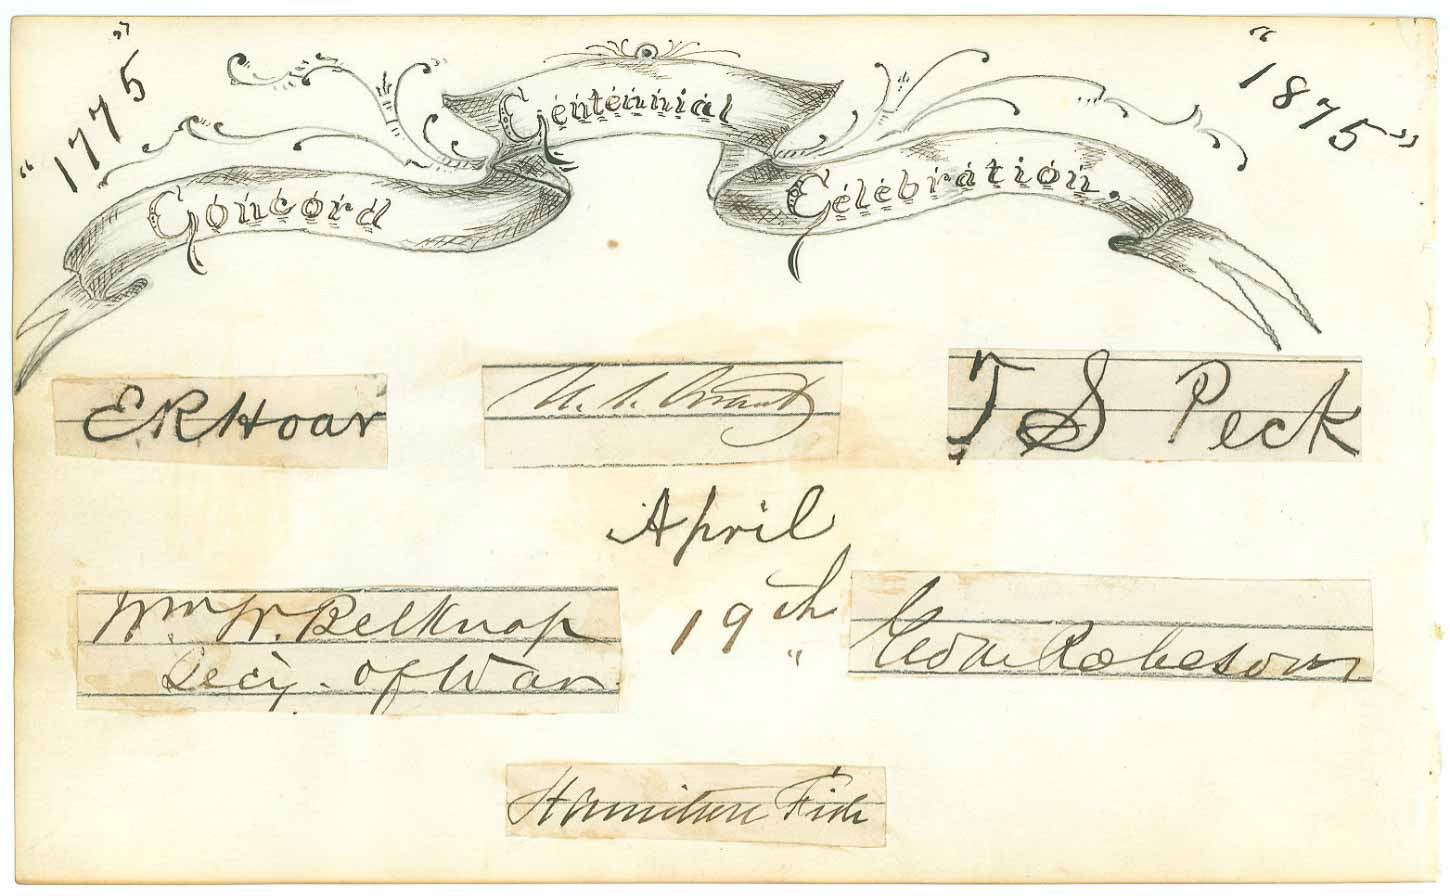 "1775"
"1875"
Concord Centennial Celebration.
E R Hoar
U. S. Grant
T S Peck
April
19th
Wm W. Belknap
Secy. of War
Geo M Robeson
Hamilton Fish